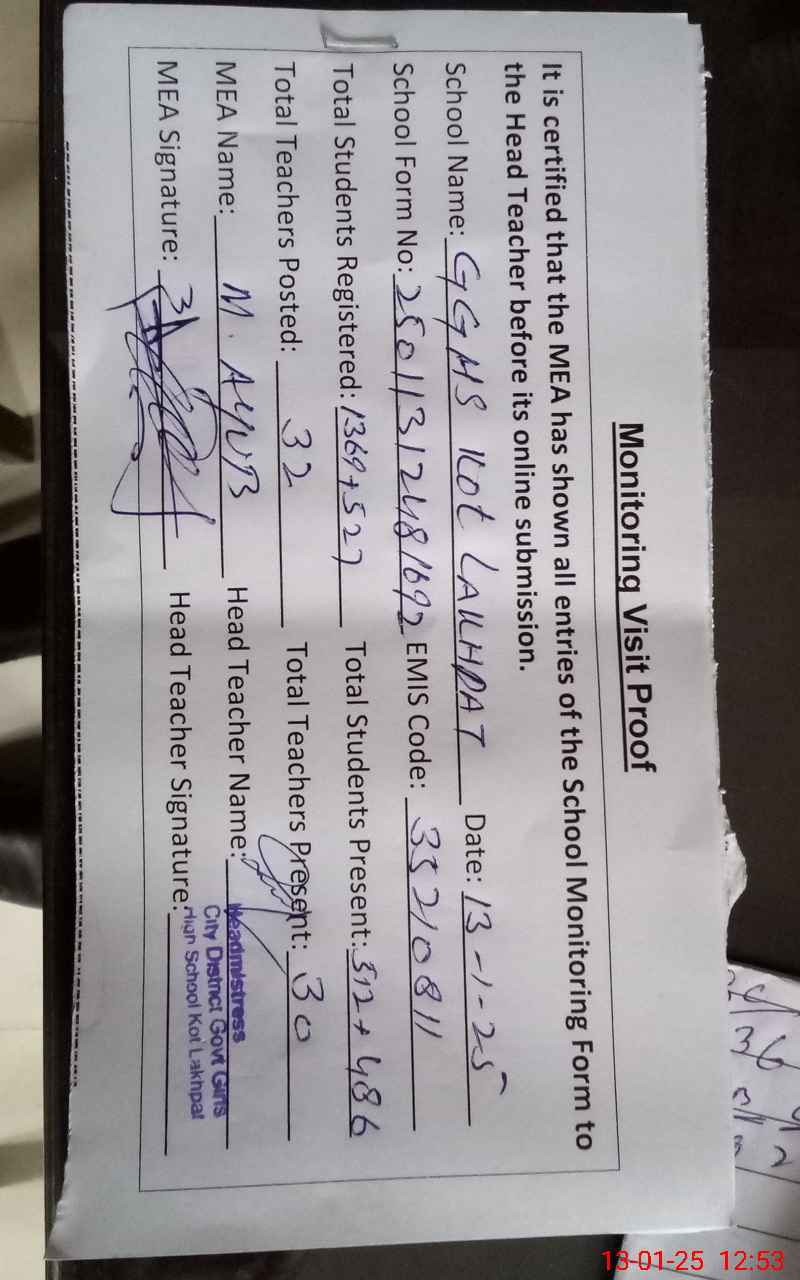 Monitoring Visit Proof
It is certified that the MEA has shown all entries of the School Monitoring Form to
the Head Teacher before its online submission.
School Name: GGHS KOt LAKHPAT Date: 13-1-25
School Form No: 25011312481692 EMIS Code: 35210811
Total Students Registered: 1369+527 Total Students Present: 512+486
Total Teachers Posted: 32 Total Teachers Present: 30
MEA Name: M. AYUB Head Teacher Name:
MEA Signature: Head Teacher Signature:
Headmistress
City District Govt Girls
High School Kot Lakhpat
13-01-25 12:53